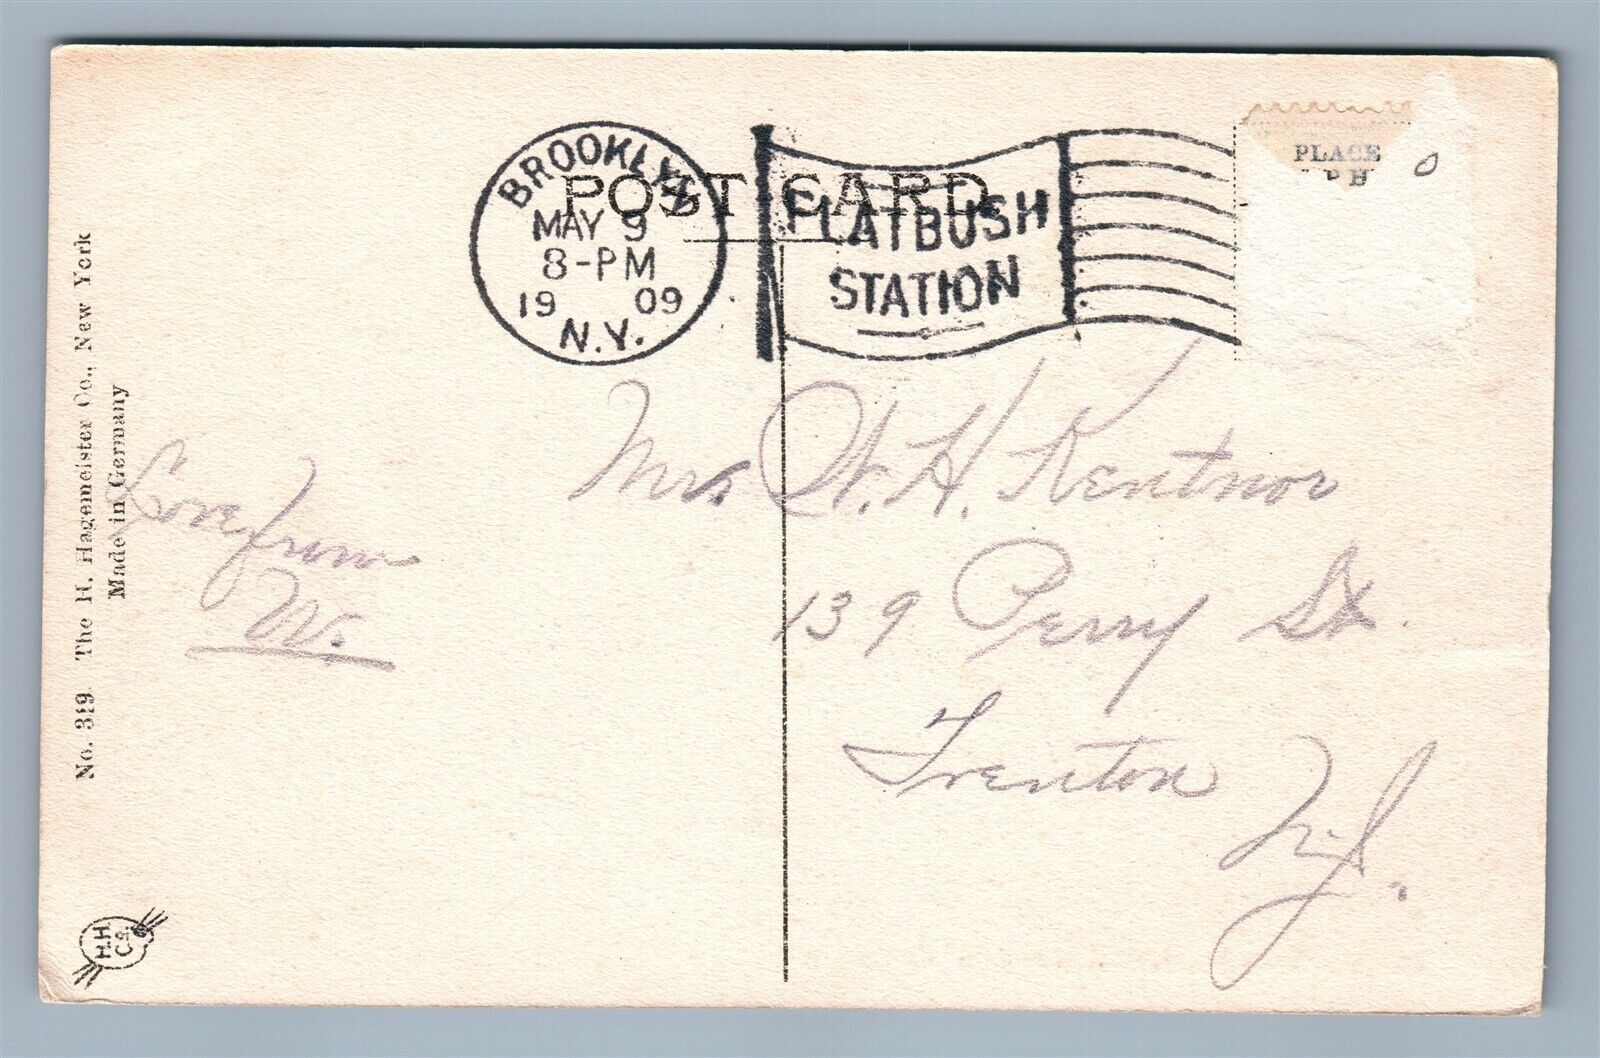 POST CARD
BROOKLYN
MAY 9
8-PM
19 09
N.Y.
FLATBUSH
STATION
PLACE
No. 319. The H. Hagemeister Co., New York
Made in Germany
Love from
W.
Mrs W. H. Kentnor
139 Perry St
Trenton
N.J.
H.H.
Co.